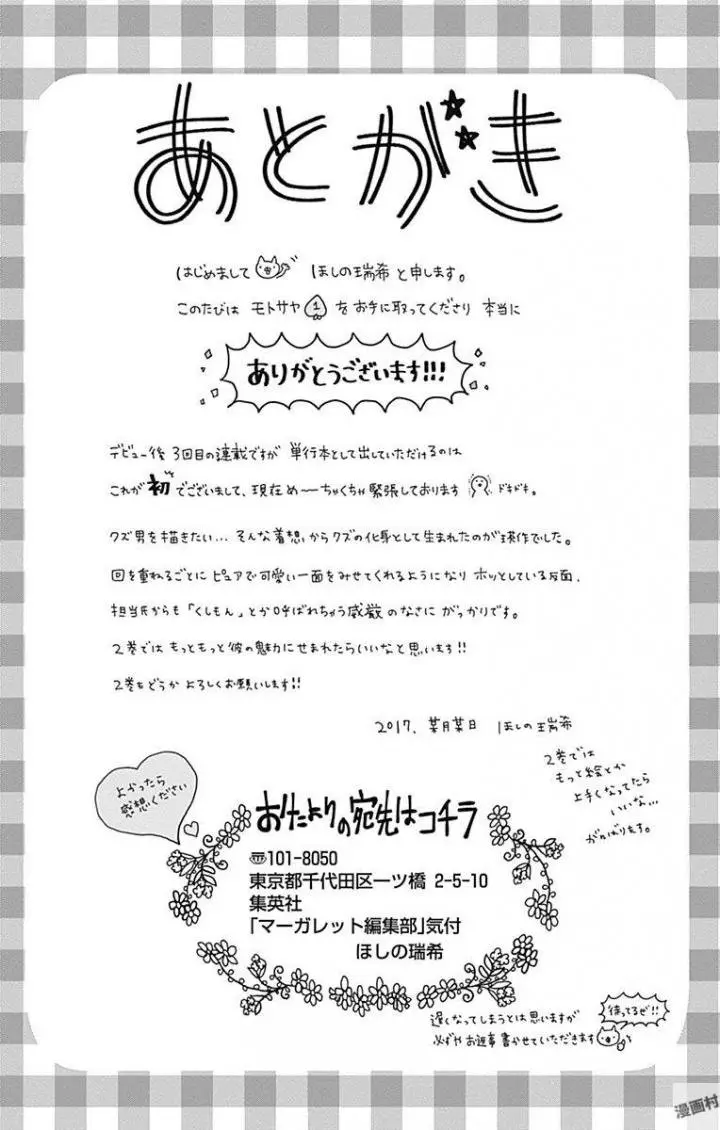 あとがき
はじめまして ほしの瑞希 と申します。
このたびは モトサヤ 1 をお手に取ってくださり 本当に
ありがとうございます!!!
デビュー後 3回目の連載ですが 単行本として出していただけるのは
これが 初 でございまして、現在め〜ちゃくちゃ緊張しております ドキドキ。
クズ男を描きたい… そんな着想からクズの化身として生まれたのが瑛作でした。
回を重ねるごとに ピュアで可愛い一面をみせてくれるようになり ホッとしている反面、
担当氏からも「くしもん」とか呼ばれちゃう威厳のなさに がっかりです。
2巻では もっともっと彼の魅力にせまれたらいいなと思います!!
2巻もどうか よろしくお願いします!!
2017. 某月某日 ほしの瑞希
2巻では
もっと絵とか
上手くなってたら
いいな…
がんばります。
よかったら
感想ください
おたよりの宛先はコチラ
〒101-8050
東京都千代田区一ツ橋 2-5-10
集英社
「マーガレット編集部」気付
ほしの瑞希
待ってるぜ!!
遅くなってしまうとは思いますが
必ずやお返事書かせていただきます
漫画村